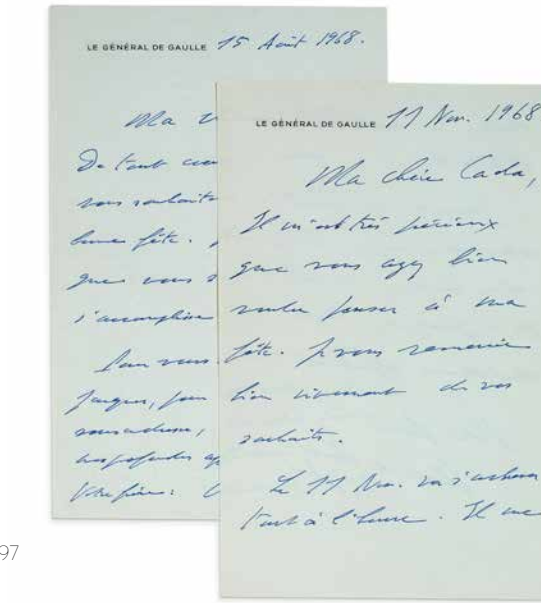 LE GÉNÉRAL DE GAULLE 15 Août 1968.
Ma
De tout
vous
bonne fête.
que vous
s'accomplisse
Pour vous
Jacques, pour
vous adresse,
Votre frère :
LE GÉNÉRAL DE GAULLE 11 Nov. 1968
Ma chère Cada,
Il m'est très précieux
que vous ayez bien
voulu penser à ma
fête. Je vous remercie
bien vivement de vos
souhaits.
Le 11 Nov. va s'achever
tout à l'heure. Il me
97